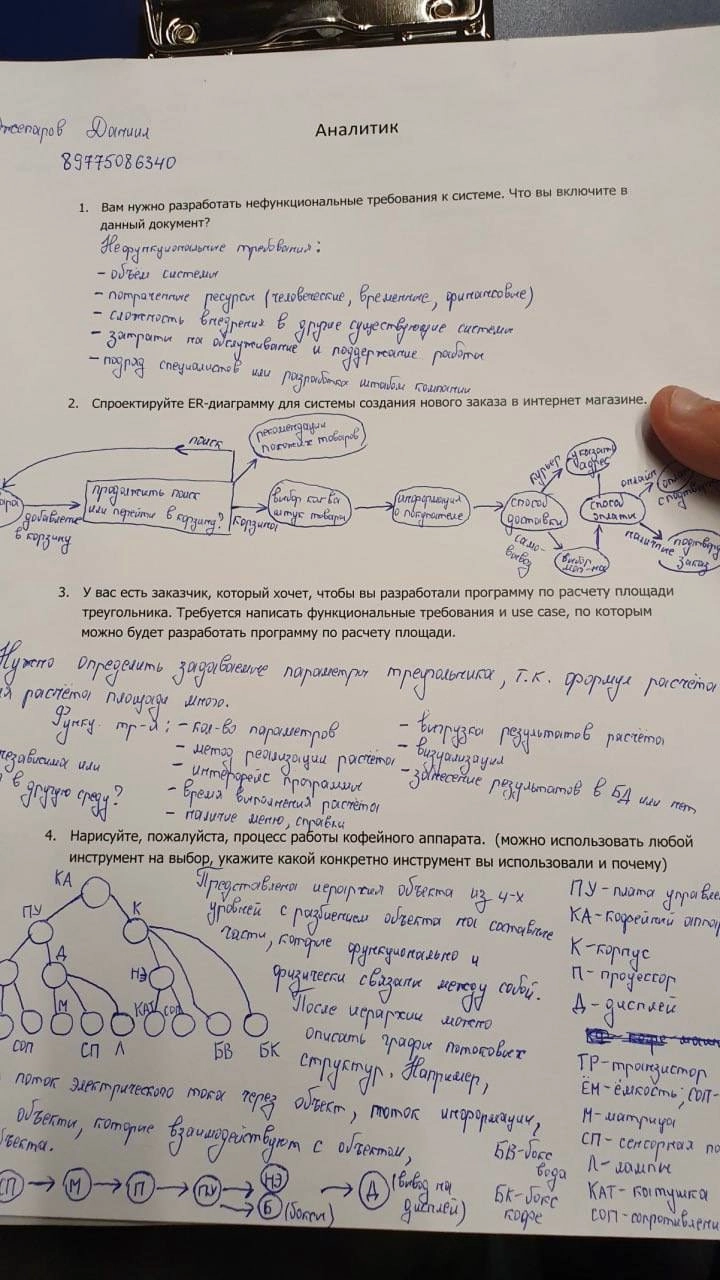 Джепаров Даниил
Аналитик
89775086340
1. Вам нужно разработать нефункциональные требования к системе. Что вы включите в
данный документ?
Нефункциональные требования:
- объём системы
- потраченные ресурсы (человеческие, временные, финансовые)
- сложность внедрения в другие существующие системы
- затраты на обслуживание и поддержание работы
- подряд специалистов или разработка штабом компании
2. Спроектируйте ER-диаграмму для системы создания нового заказа в интернет магазине.
поиск
рекомендации
похожих товаров
добавляете
в корзину
продолжить поиск
или перейти в корзину?
корзина
выбор кол-ва
штук товара
информация
о покупателе
способ
доставки
курьер
указать
адрес
само-
вывоз
выбор
способ
оплаты
онлайн
наличные
заказ
3. У вас есть заказчик, который хочет, чтобы вы разработали программу по расчету площади
треугольника. Требуется написать функциональные требования и use case, по которым
можно будет разработать программу по расчету площади.
Нужно определить задаваемые параметры треугольника, т.к. формул расчёта
расчёта площади много.
Функ. тр-я: - кол-во параметров
- метод реализации расчёта
- интерфейс программы
- время выполнения расчёта
- наличие меню, справки
- выгрузка результатов расчёта
- визуализация
- занесение результатов в БД или нет
независима или
в другую среду?
4. Нарисуйте, пожалуйста, процесс работы кофейного аппарата. (можно использовать любой
инструмент на выбор, укажите какой конкретно инструмент вы использовали и почему)
КА
ПУ
К
Д
НЭ
М
КАТ
СОП
СОП
СП
Л
БВ
БК
Представлена иерархия объекта из 4-х
уровней с разбиением объекта на составные
части, которые функционально и
физически связаны между собой.
После иерархии можно
описать графы потоковых
структур. Например,
поток электрического тока через объект, поток информации,
объекты, которые взаимодействуют с объектом,
ПУ - плата
КА - кофейный
К - корпус
П - процессор
Д - дисплей
ТР - транзистор
ЁМ - ёмкость; СОП -
М - матрица
СП - сенсорная
Л - лампы
КАТ - катушка
СОП - сопротивление
БВ - бокс
вода
БК - бокс
кофе
СП → М → П → ПУ → НЭ
Б (боксы)
→ Д (вывод на
дисплей)